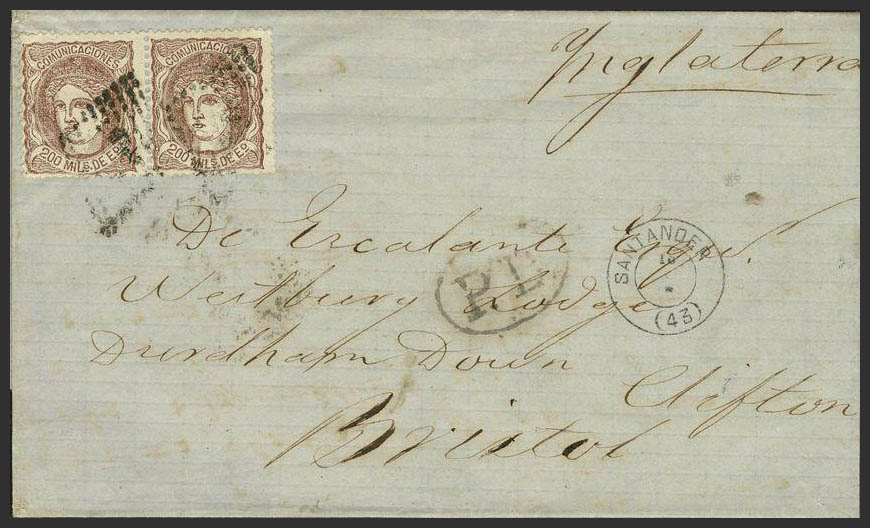 COMUNICACIONES
200 MILS. DE EO
COMUNICACIONES
200 MILS. DE EO
Ynglaterra
De Escalante Esqr.
Westbury Lodge
Durdham Down
Clifton
Bristol
P.D.
SANTANDER
(43)